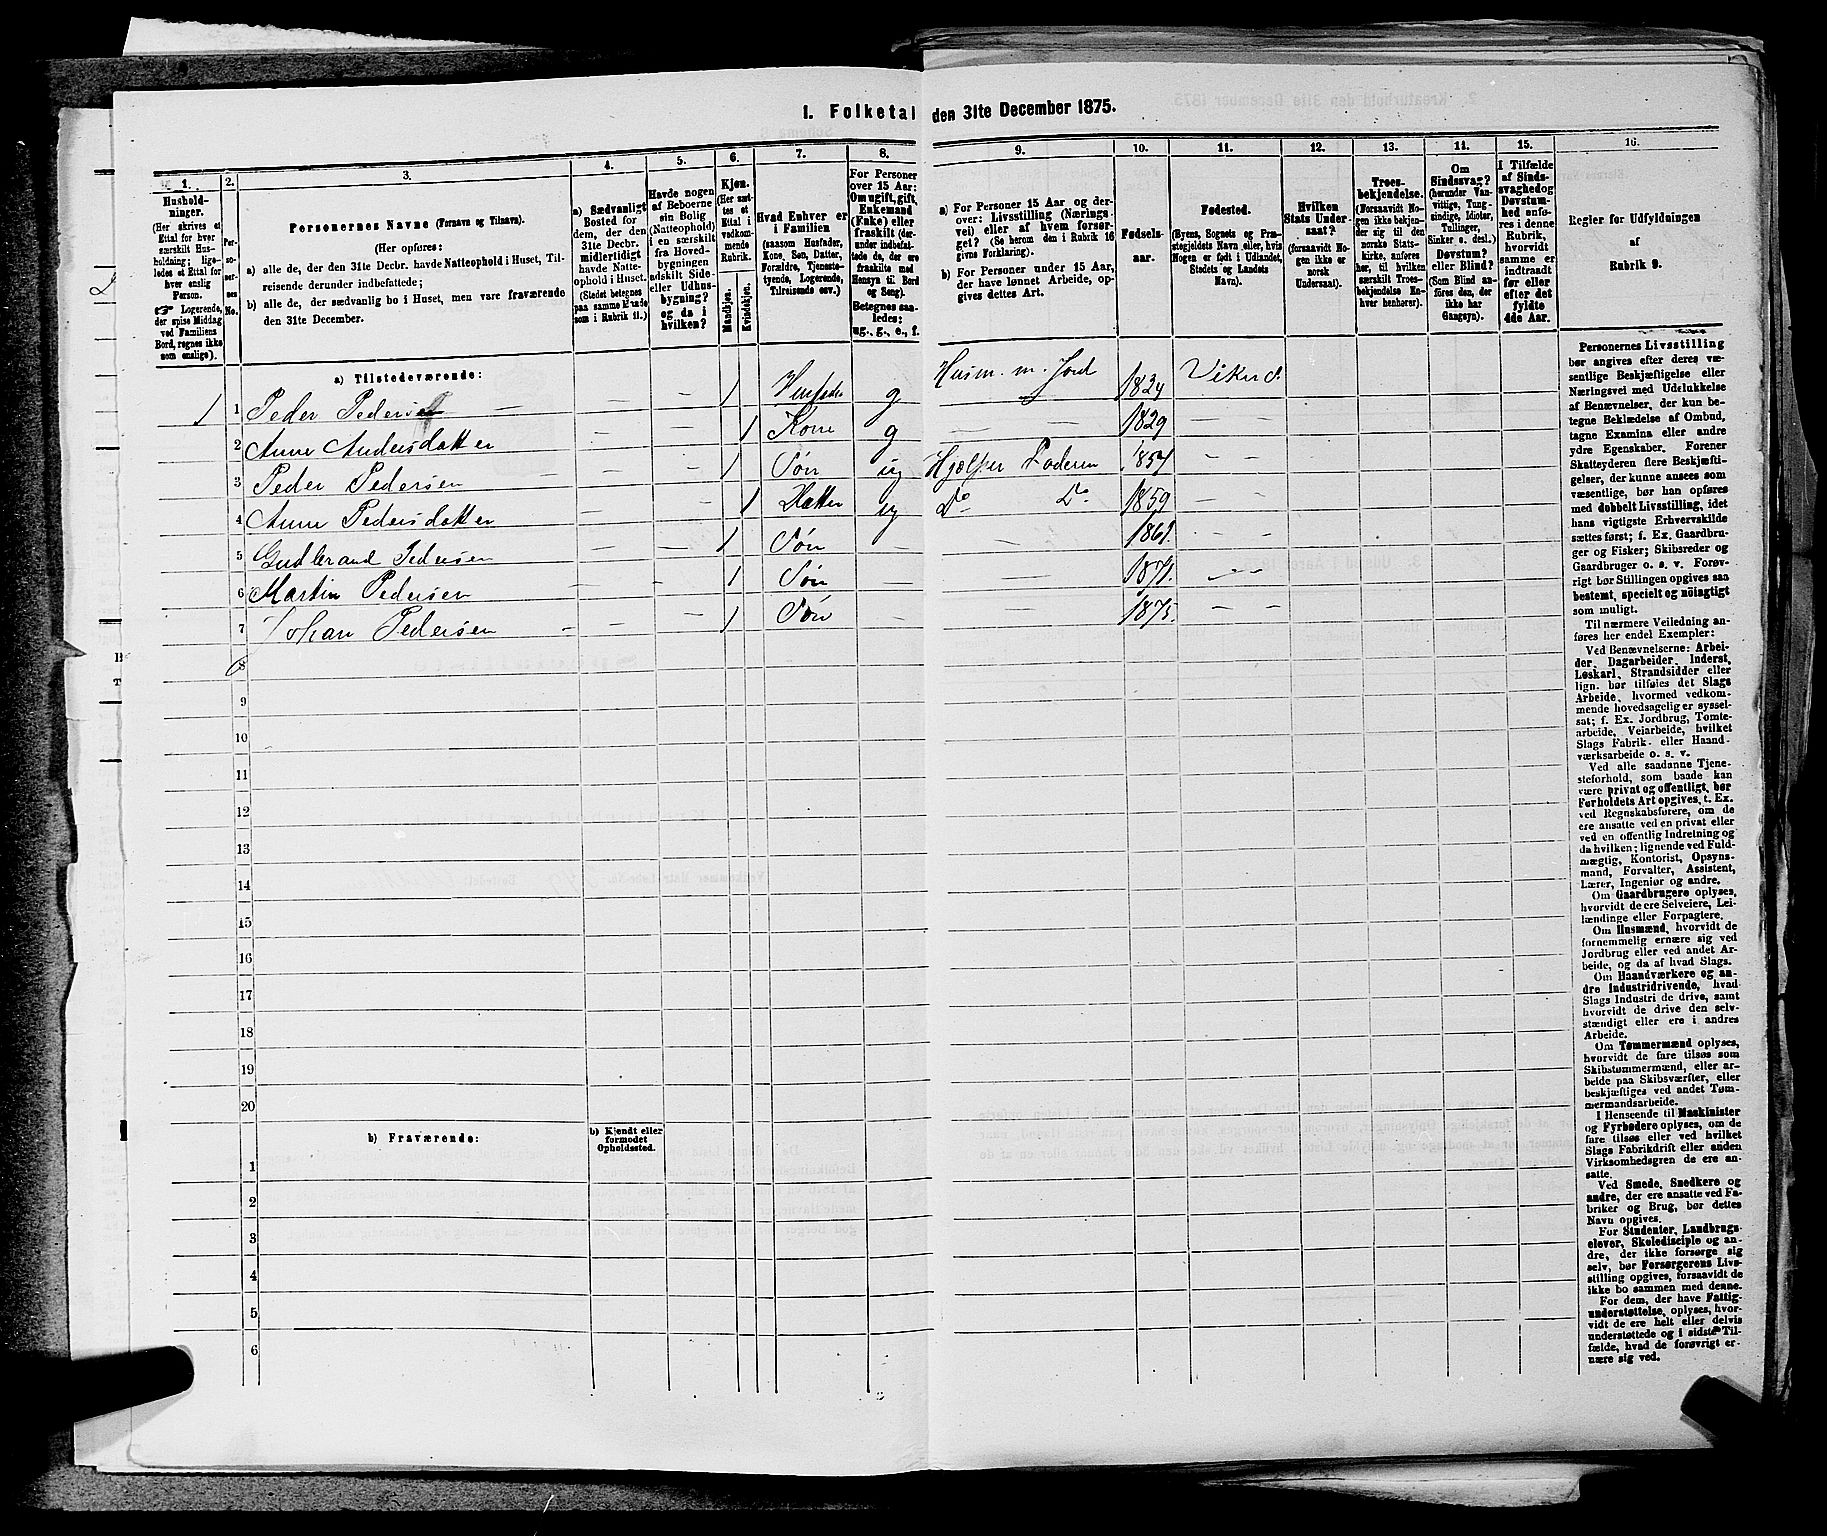 I. Folketal den 31te December 1875.
1. 2. 3. 4. 5. 6. 7. 8. 9. 10. 11. 12. 13. 14. 15. 16.
Hushold-
ninger.
(Her skrives et
Ettal for hver
særskilt Hus-
holdning; lige-
ledes et Ettal for
hver enslig
Person.
☞ Logerende,
der spise Middag
ved Familiens
Bord, regnes ikke
som enslige).
Per-
so-
ner-
nes
No.
Personernes Navne (Fornavn og Tilnavn).
(Her opføres:
a) alle de, der den 31te Decbr. havde Natteophold i Huset, Til-
reisende derunder indbefattede;
b) alle de, der sædvanlig bo i Huset, men vare fraværende
den 31te December.
a) Sædvanligt
Bosted for
dem, der den
31te Decbr.
midlertidigt
havde Natte-
ophold i Huset.
(Stedet betegnes
paa samme Maade
som i Rubrik 11.)
Havde nogen
af Beboerne
sin Bolig
(Natteophold)
i en særskilt
fra Hoved-
bygningen
adskilt Side-
eller Udhus-
bygning?
og da i
hvilken?
Kjøn.
(Her sæt-
tes et
Ettal i
vedkom-
mende
Rubrik.
Mandkjøn.
Kvindekjøn.
Hvad Enhver er
i Familien
(saasom Husfader,
Kone, Søn, Datter,
Forældre, Tjeneste-
tyende, Logerende,
Tilreisende osv.)
For Personer
over 15 Aar:
Om ugift, gift,
Enkemand
(Enke) eller
fraskilt (der-
under indbefat-
tede de, der ere
fraskilte med
Hensyn til Bord
og Seng).
Betegnes saa-
ledes:
ug., g., e., f.
a) For Personer 15 Aar og der-
over: Livsstilling (Nærings-
vei) eller af hvem forsør-
get? (Se herom den i Rubrik 16
givne Forklaring).
b) For Personer under 15 Aar,
der have lønnet Arbeide, op-
gives dettes Art.
Fødsels-
aar.
Fødested.
(Byens, Sognets og Præ-
stegjeldets Navn eller, hvis
Nogen er født i Udlandet,
Stedets og Landets
Navn).
Hvilken
Stats Under-
saat?
(forsaavidt No-
gen ikke er
norsk
Undersaat).
Troes-
bekjendelse.
(Forsaavidt No-
gen ikke bekjen-
der sig til den
norske Stats-
kirke, anføres
her, til hvilken
særskilt Troes-
bekjendelse En-
hver henhører).
Om
Sindssvag?
(herunder Van-
vittige, Tung-
sindige, Idioter,
Tullinger,
Sinker o. desl.)
Døvstum?
eller Blind?
(Som Blind an-
føres den, der
ikke har
Gangsyn).
I Tilfælde
af Sinds-
svaghed og
Døvstum-
hed anfø-
res i denne
Rubrik,
hvorvidt
samme er
indtraadt
før eller
efter det
fyldte
4de Aar.
Regler for Udfyldningen
af
Rubrik 9.
a) Tilstedeværende:
1 1 Peder Pedersen — — — 1 Husfader g Husm. m. Jord 1824 Vikud.
2 Anne Andersdatter — — 1 Kone g — — 1829 — —
3 Peder Pedersen — — 1 Søn ug Hjælper Faderen 1857 — —
4 Anne Pedersdatter — — 1 Datter ug Do Do 1859 — —
5 Gudbrand Pedersen — — 1 Søn — — 1861. — —
6 Martin Pedersen — — 1 Søn — 1871. — —
7 Johan Pedersen — — — 1 Søn — — 1875. — —
8
9
10
11
12
13
14
15
16
17
18
19
20
b) Fraværende:
b) Kjendt eller
formodet
Opholdssted.
1
2
3
4
5
6
Personernes Livsstilling
bør angives efter deres væ-
sentlige Beskjæftigelse eller
Næringsvei med Udelukkelse
af Benævnelser, der kun be-
tegne Beklædelse af Ombud,
tagne Examina eller andre
ydre Egenskaber. Forener
Skatteyderen flere Beskjæfti-
gelser, der kunne ansees som
væsentlige, bør han opføres
med dobbelt Livsstilling, idet
hans vigtigste Erhvervskilde
sættes først; f. Ex. Gaardbru-
ger og Fisker; Skibsreder og
Gaardbruger o. s. v. Forøv-
rigt bør Stillingen opgives saa
bestemt, specielt og nøiagtigt
som muligt.
Til nærmere Veiledning an-
føres her endel Exempler:
Ved Benævnelserne: Arbei-
der, Dagarbeider, Inderst,
Løskarl, Strandsidder eller
lign. bør tilføies det Slags
Arbeide, hvormed vedkom-
mende hovedsagelig er syssel-
sat; f. Ex. Jordbrug, Tomte-
arbeide, Veiarbeide, hvilket
Slags Fabrik- eller Haand-
værksarbeide o. s. v.
Ved alle saadanne Tjene-
steforhold, som baade kan
være privat og offentligt, bør
Forholdets Art opgives, t. Ex.
ved Regnskabsførere, om de
ere ansatte ved en privat eller
ved en offentlig Indretning og
da hvilken; lignende ved Fuld-
mægtig, Kontorist, Opsyns-
mand, Forvalter, Assistent,
Lærer, Ingeniør og andre.
Om Gaardbrugere oplyses,
hvorvidt de ere Selveiere, Lei-
lændinge eller Forpagtere.
Om Husmænd, hvorvidt de
fornemmelig ernære sig ved
Jordbrug eller ved andet Ar-
beide, og da af hvad Slags.
Om Haandværkere og an-
dre Industridrivende, hvad
Slags Industri de drive, samt
hvorvidt de drive den selv-
stændigt eller ere i andres
Arbeide.
Om Tømmermænd oplyses,
hvorvidt de fare tilsøs som
Skibstømmermænd, eller ar-
beide paa Skibsværfter, eller
beskjæftiges ved andet Tøm-
mermandsarbeide.
I Henseende til Maskinister
og Fyrbødere oplyses, om de
fare tilsøs eller ved hvilket
Slags Fabrikdrift eller anden
Virksomhedsgren de ere an-
satte.
Ved Smede, Snedkere og
andre, der ere ansatte ved Fa-
briker og Brug, bør dettes
Navn opgives.
For Studenter, Landbrugs-
elever, Skoledisciple og an-
dre, der ikke forsørge sig
selv, bør Forsørgerens Livs-
stilling opgives, forsaavidt de
ikke bo sammen med denne.
For dem, der have Fattig-
understøttelse, oplyses, hvor-
vidt de ere helt eller delvis
understøttede og i sidste Til-
fælde, hvad de forøvrigt er-
nære sig ved.